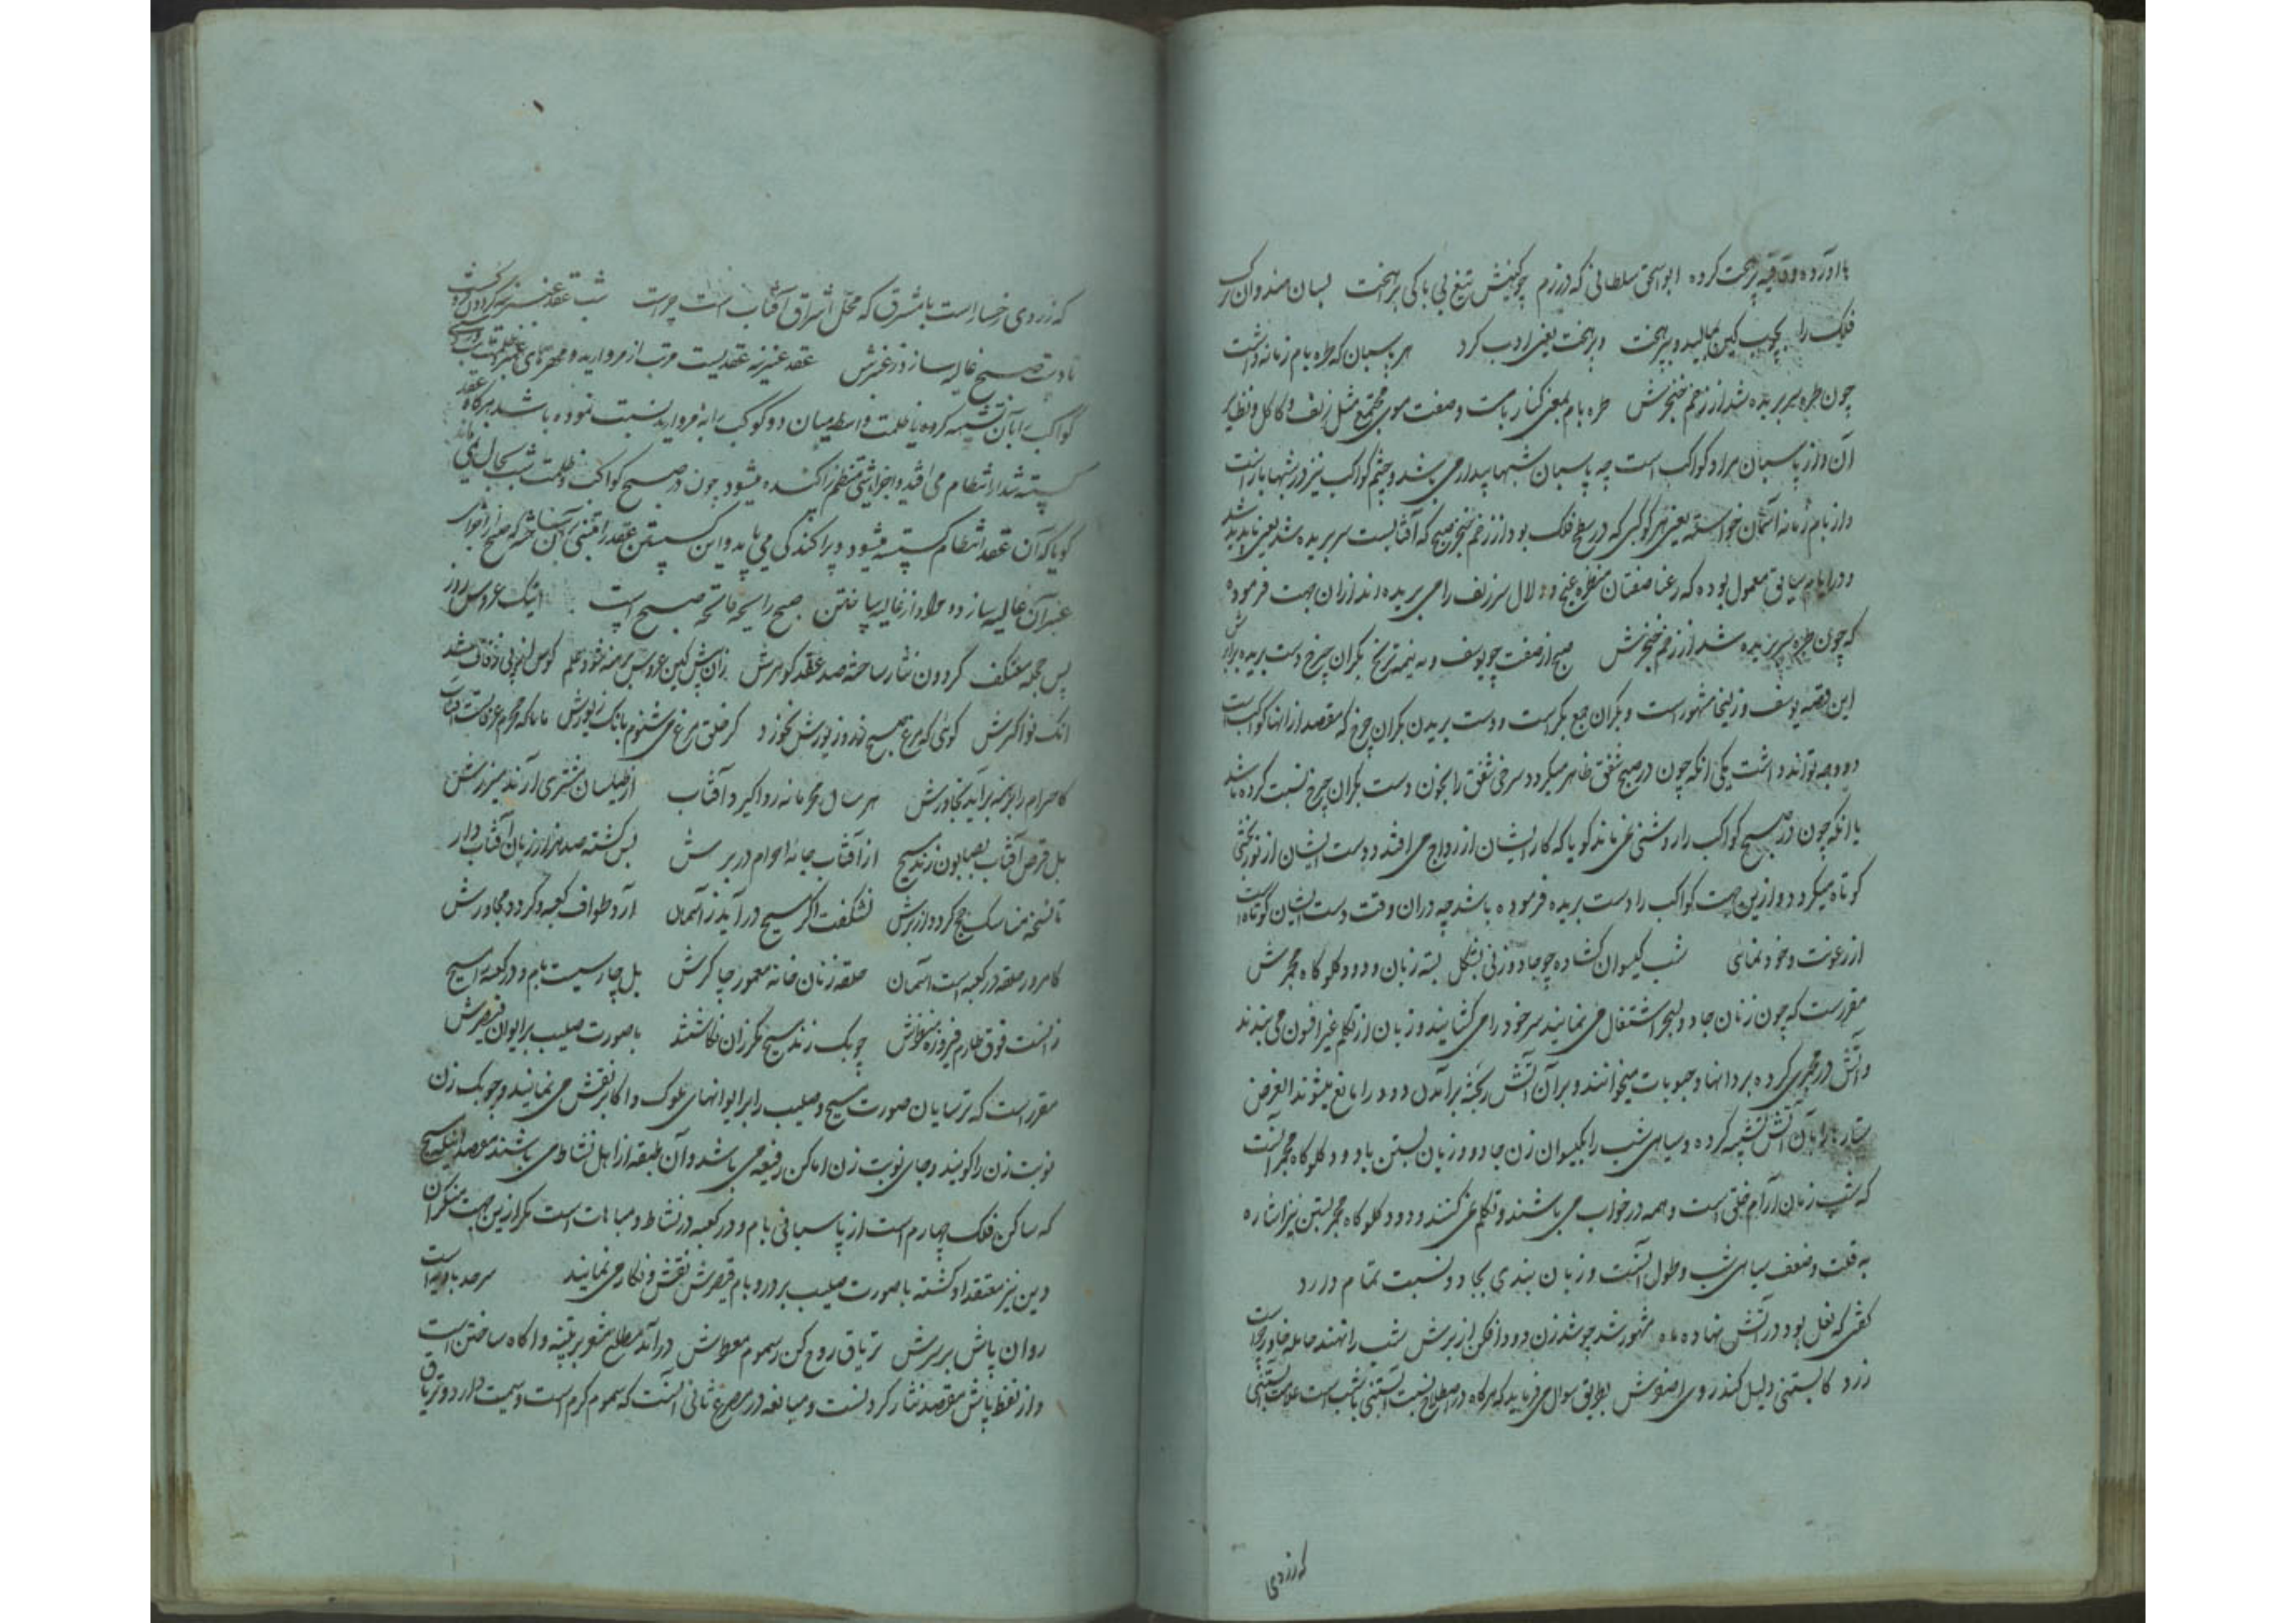 ما آورده و دقیقه پرسخت کرده ابواسحق سلطانی که در رزم چو کینش تیغ بی باکی برآهخت بسان هندوان ترک
فلک را بچوب کین بمالید و بپراهخت و پراهخت یعنی ادب کرد هر پاسبان که طره بام زمانه داشت
چون طره سر بریده شد از زخم خنجرش طره بام بمعنی کنار بامست و صفت موی مجتمع مثل زلف و کاکل و نظایر
آن و از پاسبان مراد کواکب است چه پاسبان شبها بیدار می باشد و چشم کواکب نیز در شبها باز است
و از بام زمانه آسمان خواسته یعنی هر کوکبی که در سطح فلک بود از زخم خنجر صبح که آفتابست سر بریده شد یعنی ناپدید شد
و در ایام سابق معمول بوده که رعنا صفتان منظره غنج و دلال سر زلف را می بریده اند ازان جهت فرموده
که چون طره سر بریده شد از زخم خنجرش صبح از صفت چو یوسف و مه نیمه ترنج بکران چرخ دست بریده برابرش
این قصه یوسف و زلیخا مشهور است و بکران جمع بکر است و دست بریدن بکران چرخ که مقصد از انها کواکب است
دو وجه تواند داشت یکی آنکه چون در صبح شفق ظاهر میگردد سرخی شفق را بخون دست بکران چرخ نسبت کرده باشد
یا آنکه چون در صبح کواکب را روشنی نمی ماند کویا که کار ایشان از رواج می افتد و دست ایشان از نور بخشی
کوتاه میکردد و ازین جهت کواکب را دست بریده فرموده باشد چه دران وقت دست ایشان کوتاه است
از رعونت و خود نمائی شب گیسوان گشاده چو جادو زنی بشکل بسته زبان و دود گلوگاه مجمرش
مقررست که چون زنان جادو بسحر اشتغال می نمایند سر خود را می گشایند و زبان از تکلم غیر افسون می بندند
و آتش در مجمری کرده بر دانها و حبوبات میخوانند و بر آن آتش ریخته برآمدن دود را مانع میشوند الغرض
ستارها را بآن آتش تشبیه کرده و سیاهی شب را بگیسوان زن جادو و زبان بستن با دود گلوگاه مجمر آنست
که شب زمان آرام خلق است و همه در خواب می باشند و تکلم نمی کنند و دود گلوگاه مجمر بستن نیز اشاره
به قلت و ضعف سیاهی شب و طول آنست و زبان بندی بجادو نسبت تمام دارد
گفتی که نعل بود در آتش نهاده ماه مشهور شد چو شد زن دود افکن از برش شب را نهند حامله خاور چراست
زرد کابستنی دلیل کند روی اصفرش بطریق سوال می فرماید که هرگاه در اصطلاح نسبت آبستنی با شب است علامت آبستنی
که زردی
که زردی رخسار است با مشرق که محل اشراق آفتاب است چراست شب عقد عنبرینه گردون گسیخت
تا دست صبح غالیه سازد ز عنبرش عقد عنبرینه عقدیست مرتب از مروارید و مهرهای عنبر
کواکب را بآن تشبیه کرده یا ظلمت واسطه میان دو کوکب را به مروارید نسبت نموده باشد هرگاه عقد
گسیخته شد از انتظام می افتد و اجزای منتظم پراکنده میشود چون در صبح کواکب و ظلمت شب بحال نمی ماند
گویا که آن عقد انتظام گسیخته میشود و پراکندگی می یابد و این گسیختن عقد را
عنبر آن غالیه سازد و مراد از غالیه ساختن صبح رایحه فاتحه صبح است اینک عروس روز
پس حجله معتکف گردون نثار ساخته صد عقد گوهرش زان پیش کین عروس برهنه شود علم کوس از پی زفاف شد
آنک نواگرش گوئی که مرغ صبح زر و زیورش بخورد کز حلق مرغ می شنوم بانگ زیورش مانا که محرم عرفاتست آفتاب
کاحرام را برهنه برآید ز خاورش هر سال محرمانه ردا گیرد آفتاب از طیلسان مشتری آرند میزرش
بل قرص آفتاب بصابون زند مسیح از آفتاب جامه احرام در برش پس گشته صد هزار زبان آفتاب وار
تا نسخه مناسک حج گردد از برش نشگفت اگر مسیح در آید ز آسمان آرد طواف کعبه و گردد مجاورش
کامروز حلقه در کعبه است آسمان حلقه زنان خانه معمور چاکرش بل حارسیست بام و در کعبه را مسیح
زآنست فوق طارم فیروزه منظرش چوبک زند مسیح مگر زان نگاشتند با صورت صلیب بر ایوان قیصرش
مقرر است که ترسایان صورت مسیح و صلیب را بر ایوانهای ملوک و اکابر نقش می نمایند و چوبک زن
نوبت زن را گویند و جای نوبت زن اماکن رفیعه می باشد و آن طبقه از اهل نشاط می باشند مقصد اینکه مسیح
که ساکن فلک چهارم است از پاسبانی بام و در کعبه در نشاط و مباهات است مگر ازین جهت منکران
دین نیز معتقد او گشته با صورت صلیب بر در و بام قیصرش نقش و نگار می نمایند سرحد بادیه است
روان باش بر سرش تریاق روح کن ز سموم معطرش درآمد مطلع مشعر بر تنبیه و آگاه ساختن است
و از لفظ پاش مقصد نثار کردنست و مبالغه در مصرع ثانی آنست که سموم گرم است و سمیت دارد و تریاق